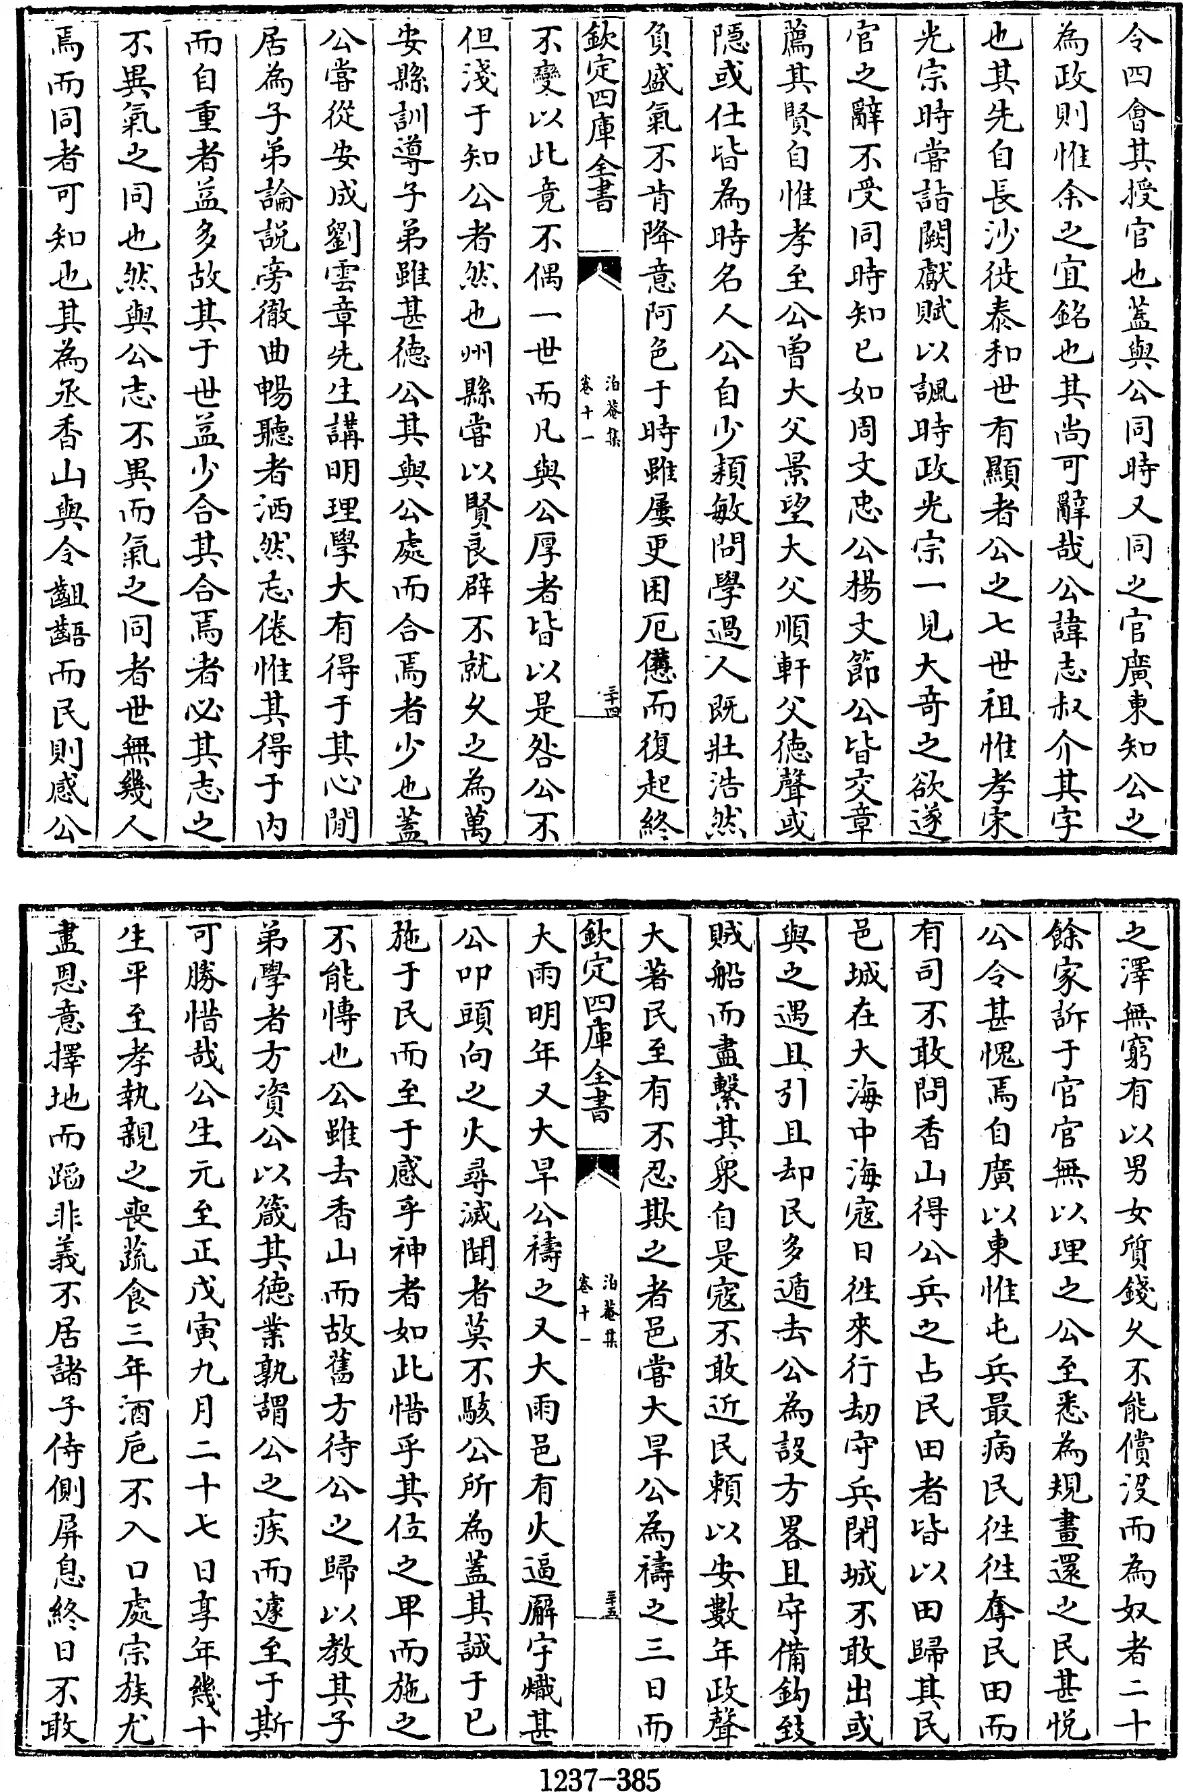 令四會其授官也蓋與公同時又同之官廣東知公之
為政則惟余之宜銘也其尚可辭哉公諱志叔介其字
也其先自長沙徙泰和世有顯者公之七世祖惟孝宋
光宗時嘗詣闕獻賦以諷時政光宗一見大奇之欲遂
官之辭不受同時知已如周文忠公楊文節公皆交章
薦其賢自惟孝至公曾大父景望大父順軒父德聲或
隠或仕皆為時名人公自少穎敏問學過人既壯浩然
負盛氣不肯降意阿色于時雖屢更困厄憊而復起終
欽定四庫全書
泊菴集
卷十一
三十四
不變以此竟不偶一世而凡與公厚者皆以是咎公不
但淺于知公者然也州縣嘗以賢良辟不就久之為萬
安縣訓導子弟雖甚德公其與公處而合焉者少也蓋
公嘗從安成劉雲章先生講明理學大有得于其心閒
居為子弟論説旁徹曲暢聽者洒然忘倦惟其得于内
而自重者益多故其于世益少合其合焉者必其志之
不異氣之同也然與公志不異而氣之同者世無幾人
焉而同者可知也其為丞香山與令齟齬而民則感公
之澤無窮有以男女質錢久不能償没而為奴者二十
餘家訴于官官無以理之公至悉為規畫還之民甚悦
公令甚愧焉自廣以東惟屯兵最病民徃徃奪民田而
有司不敢問香山得公兵之占民田者皆以田歸其民
邑城在大海中海寇日徃來行劫守兵閉城不敢出或
與之遇且引且却民多遁去公為設方畧且守備鈎致
賊船而盡繫其衆自是寇不敢近民頼以安數年政聲
大著民至有不忍欺之者邑嘗大旱公為禱之三日而
欽定四庫全書
泊菴集
卷十一
三十五
大雨明年又大旱公禱之又大雨邑有火逼廨宇熾甚
公叩頭向之火尋滅聞者莫不駭公所為蓋其誠于已
施于民而至于感乎神者如此惜乎其位之卑而施之
不能愽也公雖去香山而故舊方待公之歸以教其子
弟學者方資公以箴其德業孰謂公之疾而遽至于斯
可勝惜哉公生元至正戊寅九月二十七日享年幾十
生平至孝執親之喪蔬食三年酒巵不入口處宗族尤
盡恩意擇地而蹈非義不居諸子侍側屏息終日不敢
1237-385